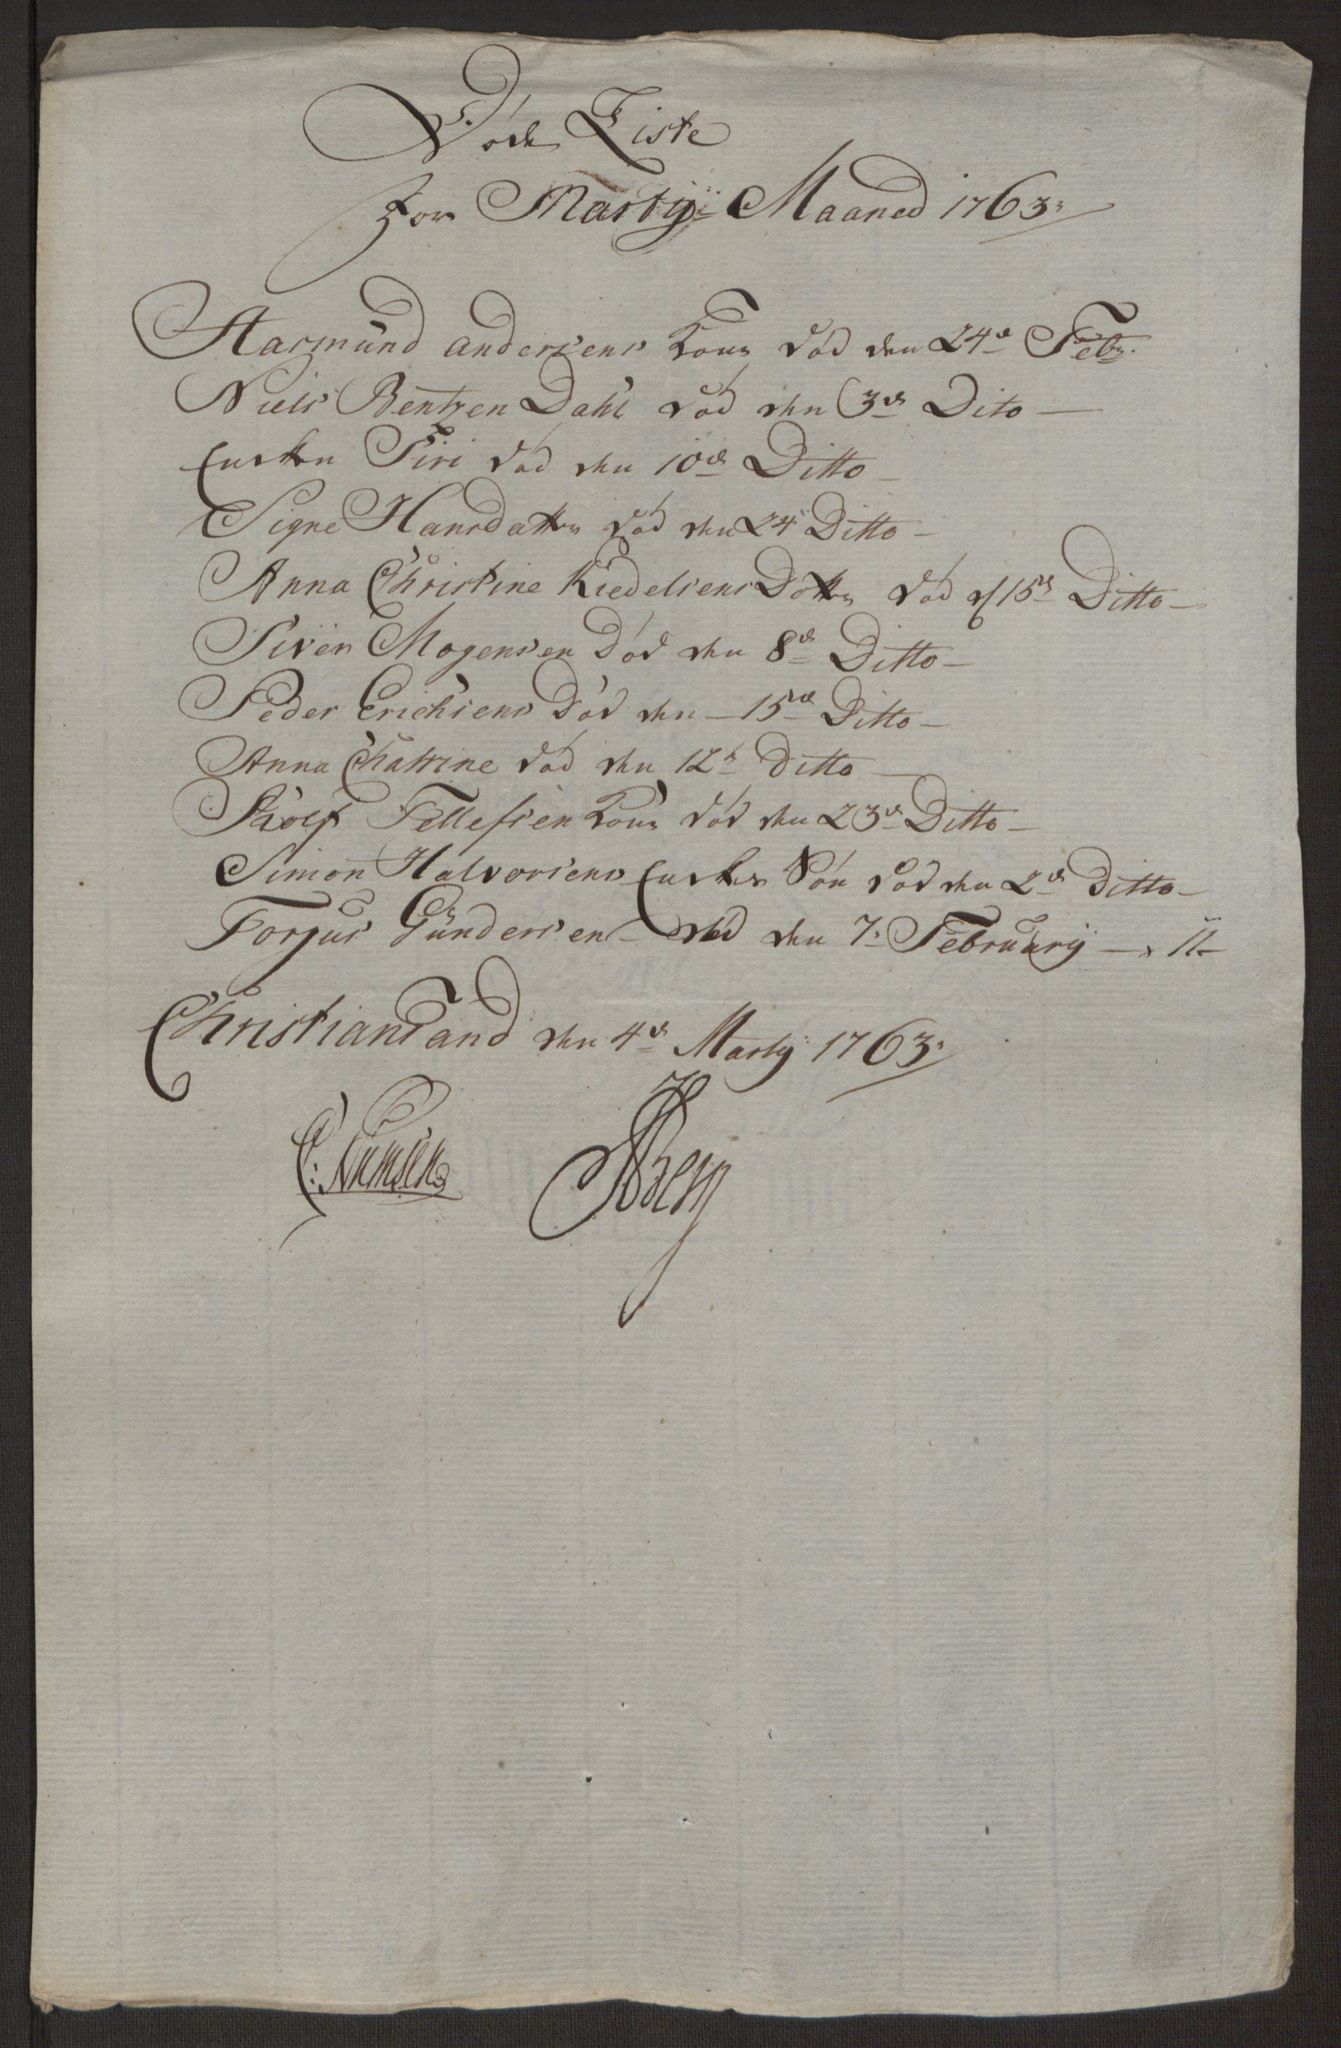 Døde Liste
for Marty Maaned 1763
Aasmund andersens Kone død den 24de Feb:
Niels Bentzen Dahl død den 3de Dito
Encken Siri død den 10de Ditto
Signe Hansdatter død den 24 Ditto
Anna Christine Kiedelsens Dotter død d 15de Ditto
Siver Mogensen Død den 8de Ditto
Peder Erichsens Død den 15de Ditto
Anna Chatrine død den 12te Ditto
Tellefsen Kone død den 23de Ditto
Simon Halvorsens Enckes Søn død den 2de Ditto
Torjus Gundersen død den 7: February 11
Christiansand den 4de Marty 1763